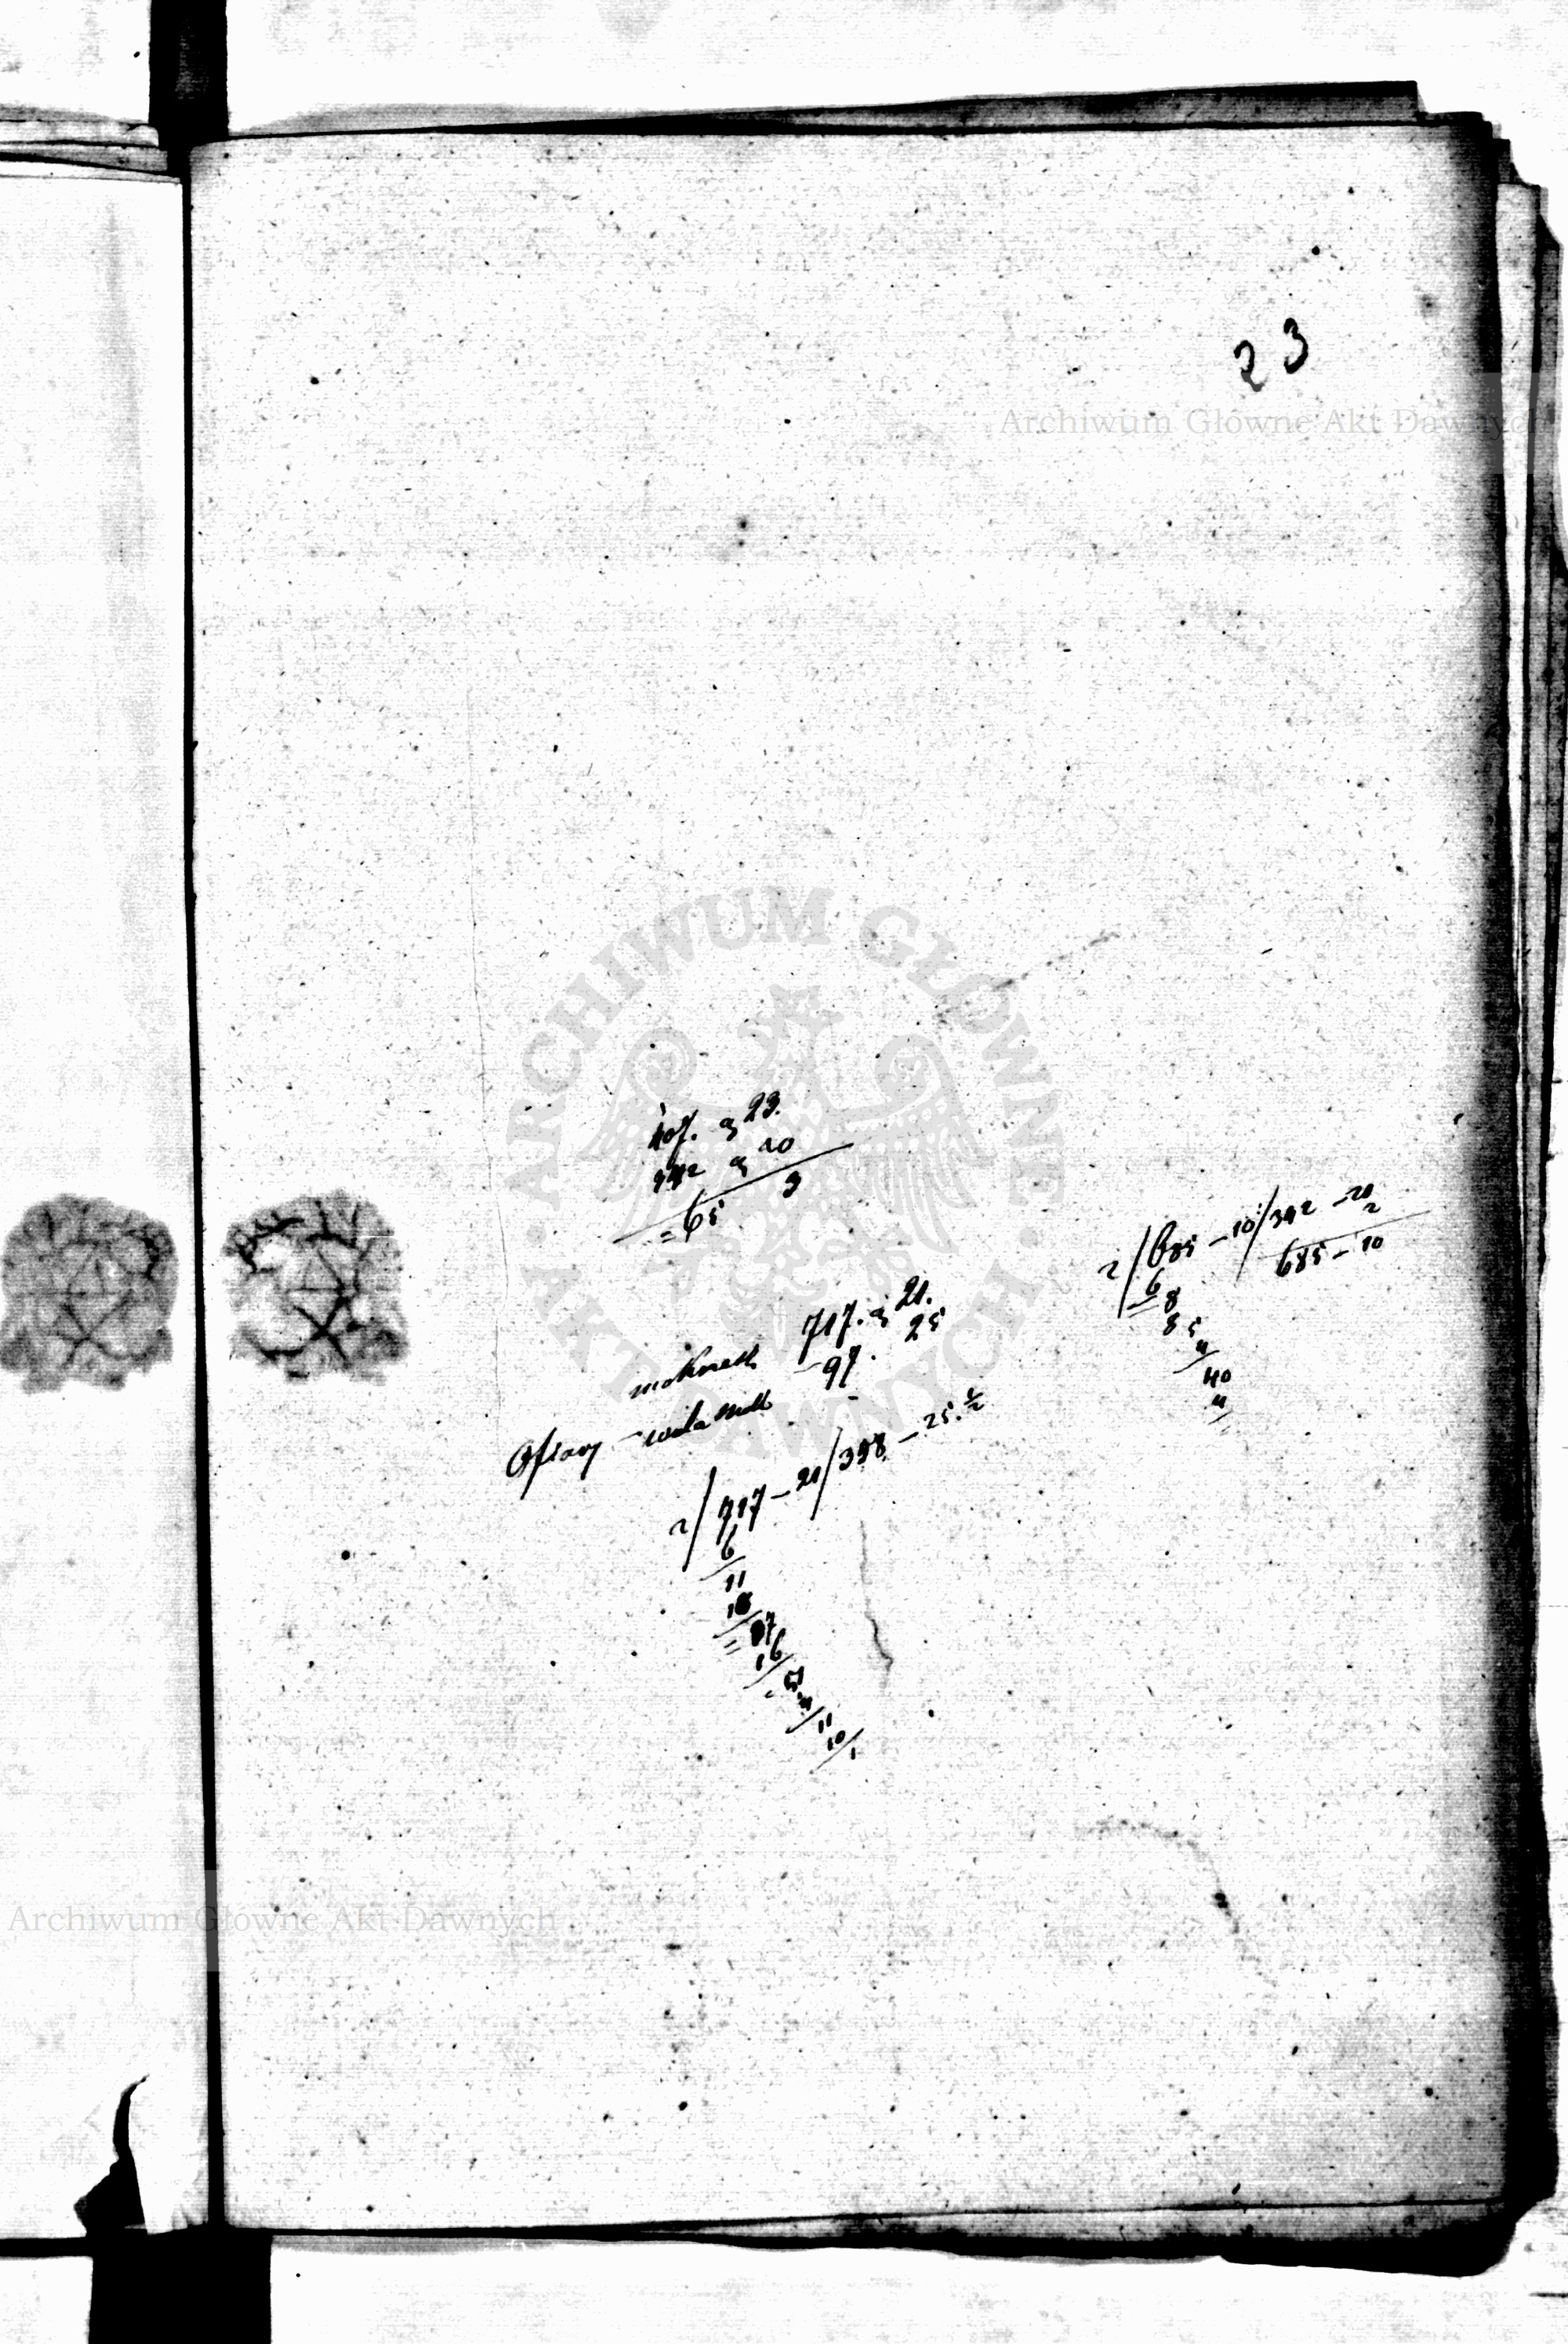 23
Archiwum Główne Akt Dawnych
ARCHIWUM GŁÓWNE
AKT DAWNYCH
407. g 23.
342 g 20
= 65 3
2/685 - 10/342 - 20
2
685 - 10
6
8
8 5
4
40
4
717. g 21.
- 97. 25
Ofiary
2/717 - 21/358 - 25. ½
6
11
10
17
16
51
4
11
10
1
Archiwum Główne Akt Dawnych